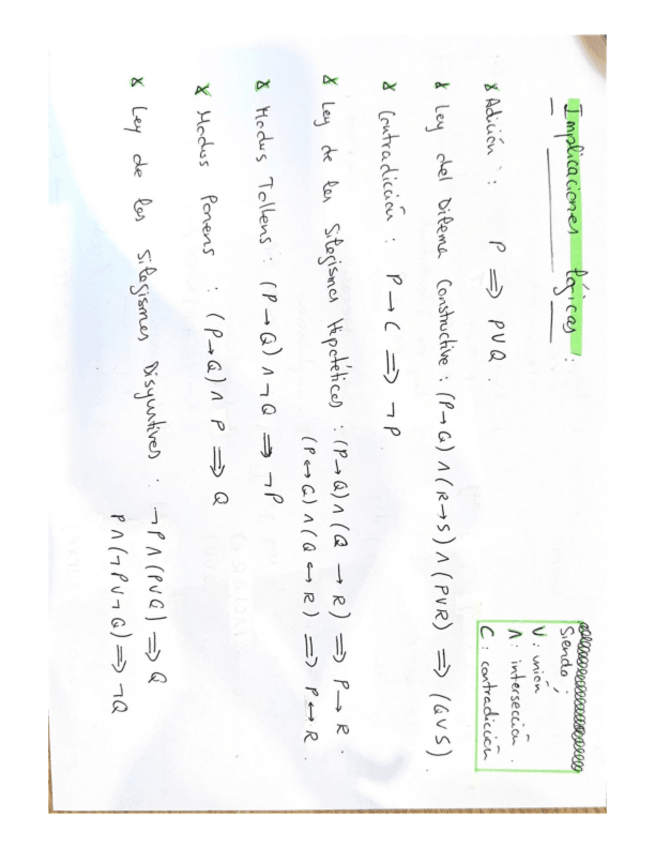 Implicaciones lógicas :
Siendo :
V : unión
Λ : intersección .
C : contradicción
Adición : P ⟹ P∨Q .
Ley del Dilema Constructivo : (P→Q) ∧ (R→S) ∧ (P∨R) ⟹ (Q∨S) .
Contradicción : P → C ⟹ ¬P
Ley de los Silogismos Hipotéticos : (P→Q) ∧ (Q → R) ⟹ P → R .
(P↔Q) ∧ (Q ↔ R) ⟹ P ↔ R .
Modus Tollens : (P→Q) ∧ ¬Q ⟹ ¬P
Modus Ponens : (P→Q) ∧ P ⟹ Q
Ley de los Silogismos Disyuntivos : ¬P ∧ (P∨Q) ⟹ Q
P ∧ (¬P∨¬Q) ⟹ ¬Q